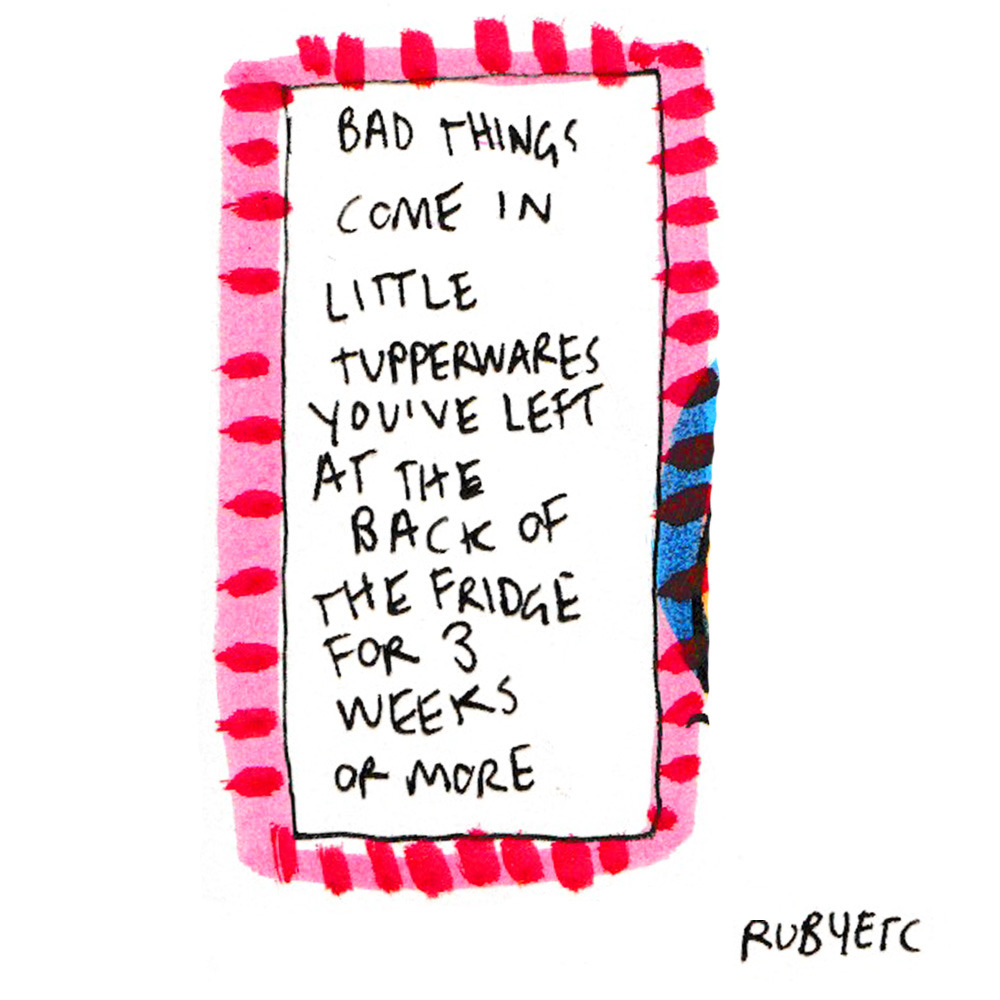 BAD THINGS
COME IN
LITTLE
TUPPERWARES
YOU'VE LEFT
AT THE
BACK OF
THE FRIDGE
FOR 3
WEEKS
OR MORE
RUBYETC